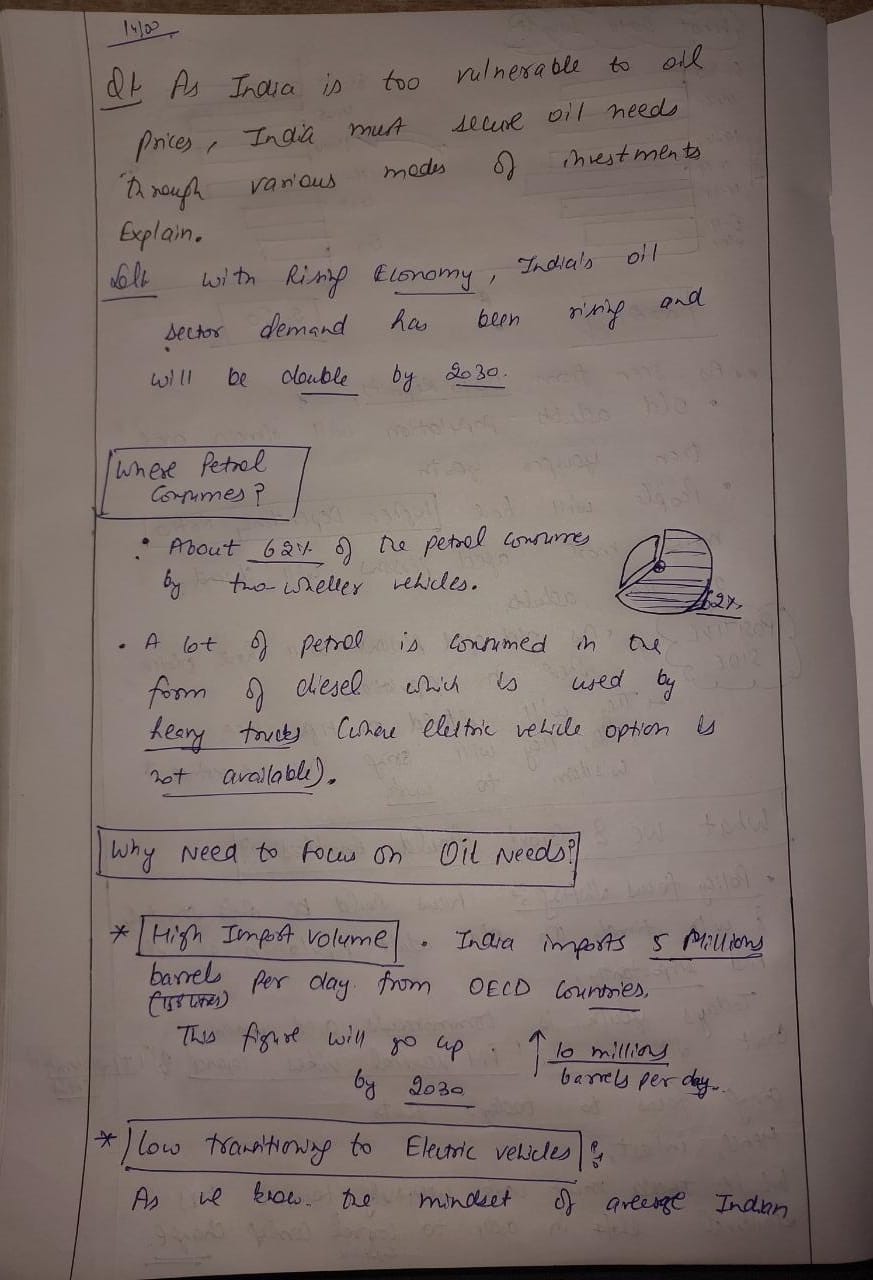 Q1 As India is too vulnerable to oil
prices, India must secure oil needs
through various modes of investments
Explain.
with Rising Economy, India's oil
sector demand has been rising and
will be double by 2030.
Where Petrol
Consumes?
• About 62% of the petrol consumes
by two-wheller vehicles.
62%
• A lot of petrol is consumed in the
form of diesel which is used by
heavy trucks (where electric vehicle option is
not available).
Why Need to Focus on Oil Needs?
* High Import Volume . India imports 5 Millions
barrels per day from OECD Countries.
This figure will go up ↑ 10 millions
by 2030 barrels per day.
* Low transitioning to Electric vehicles :
As we know the mindset of average Indian